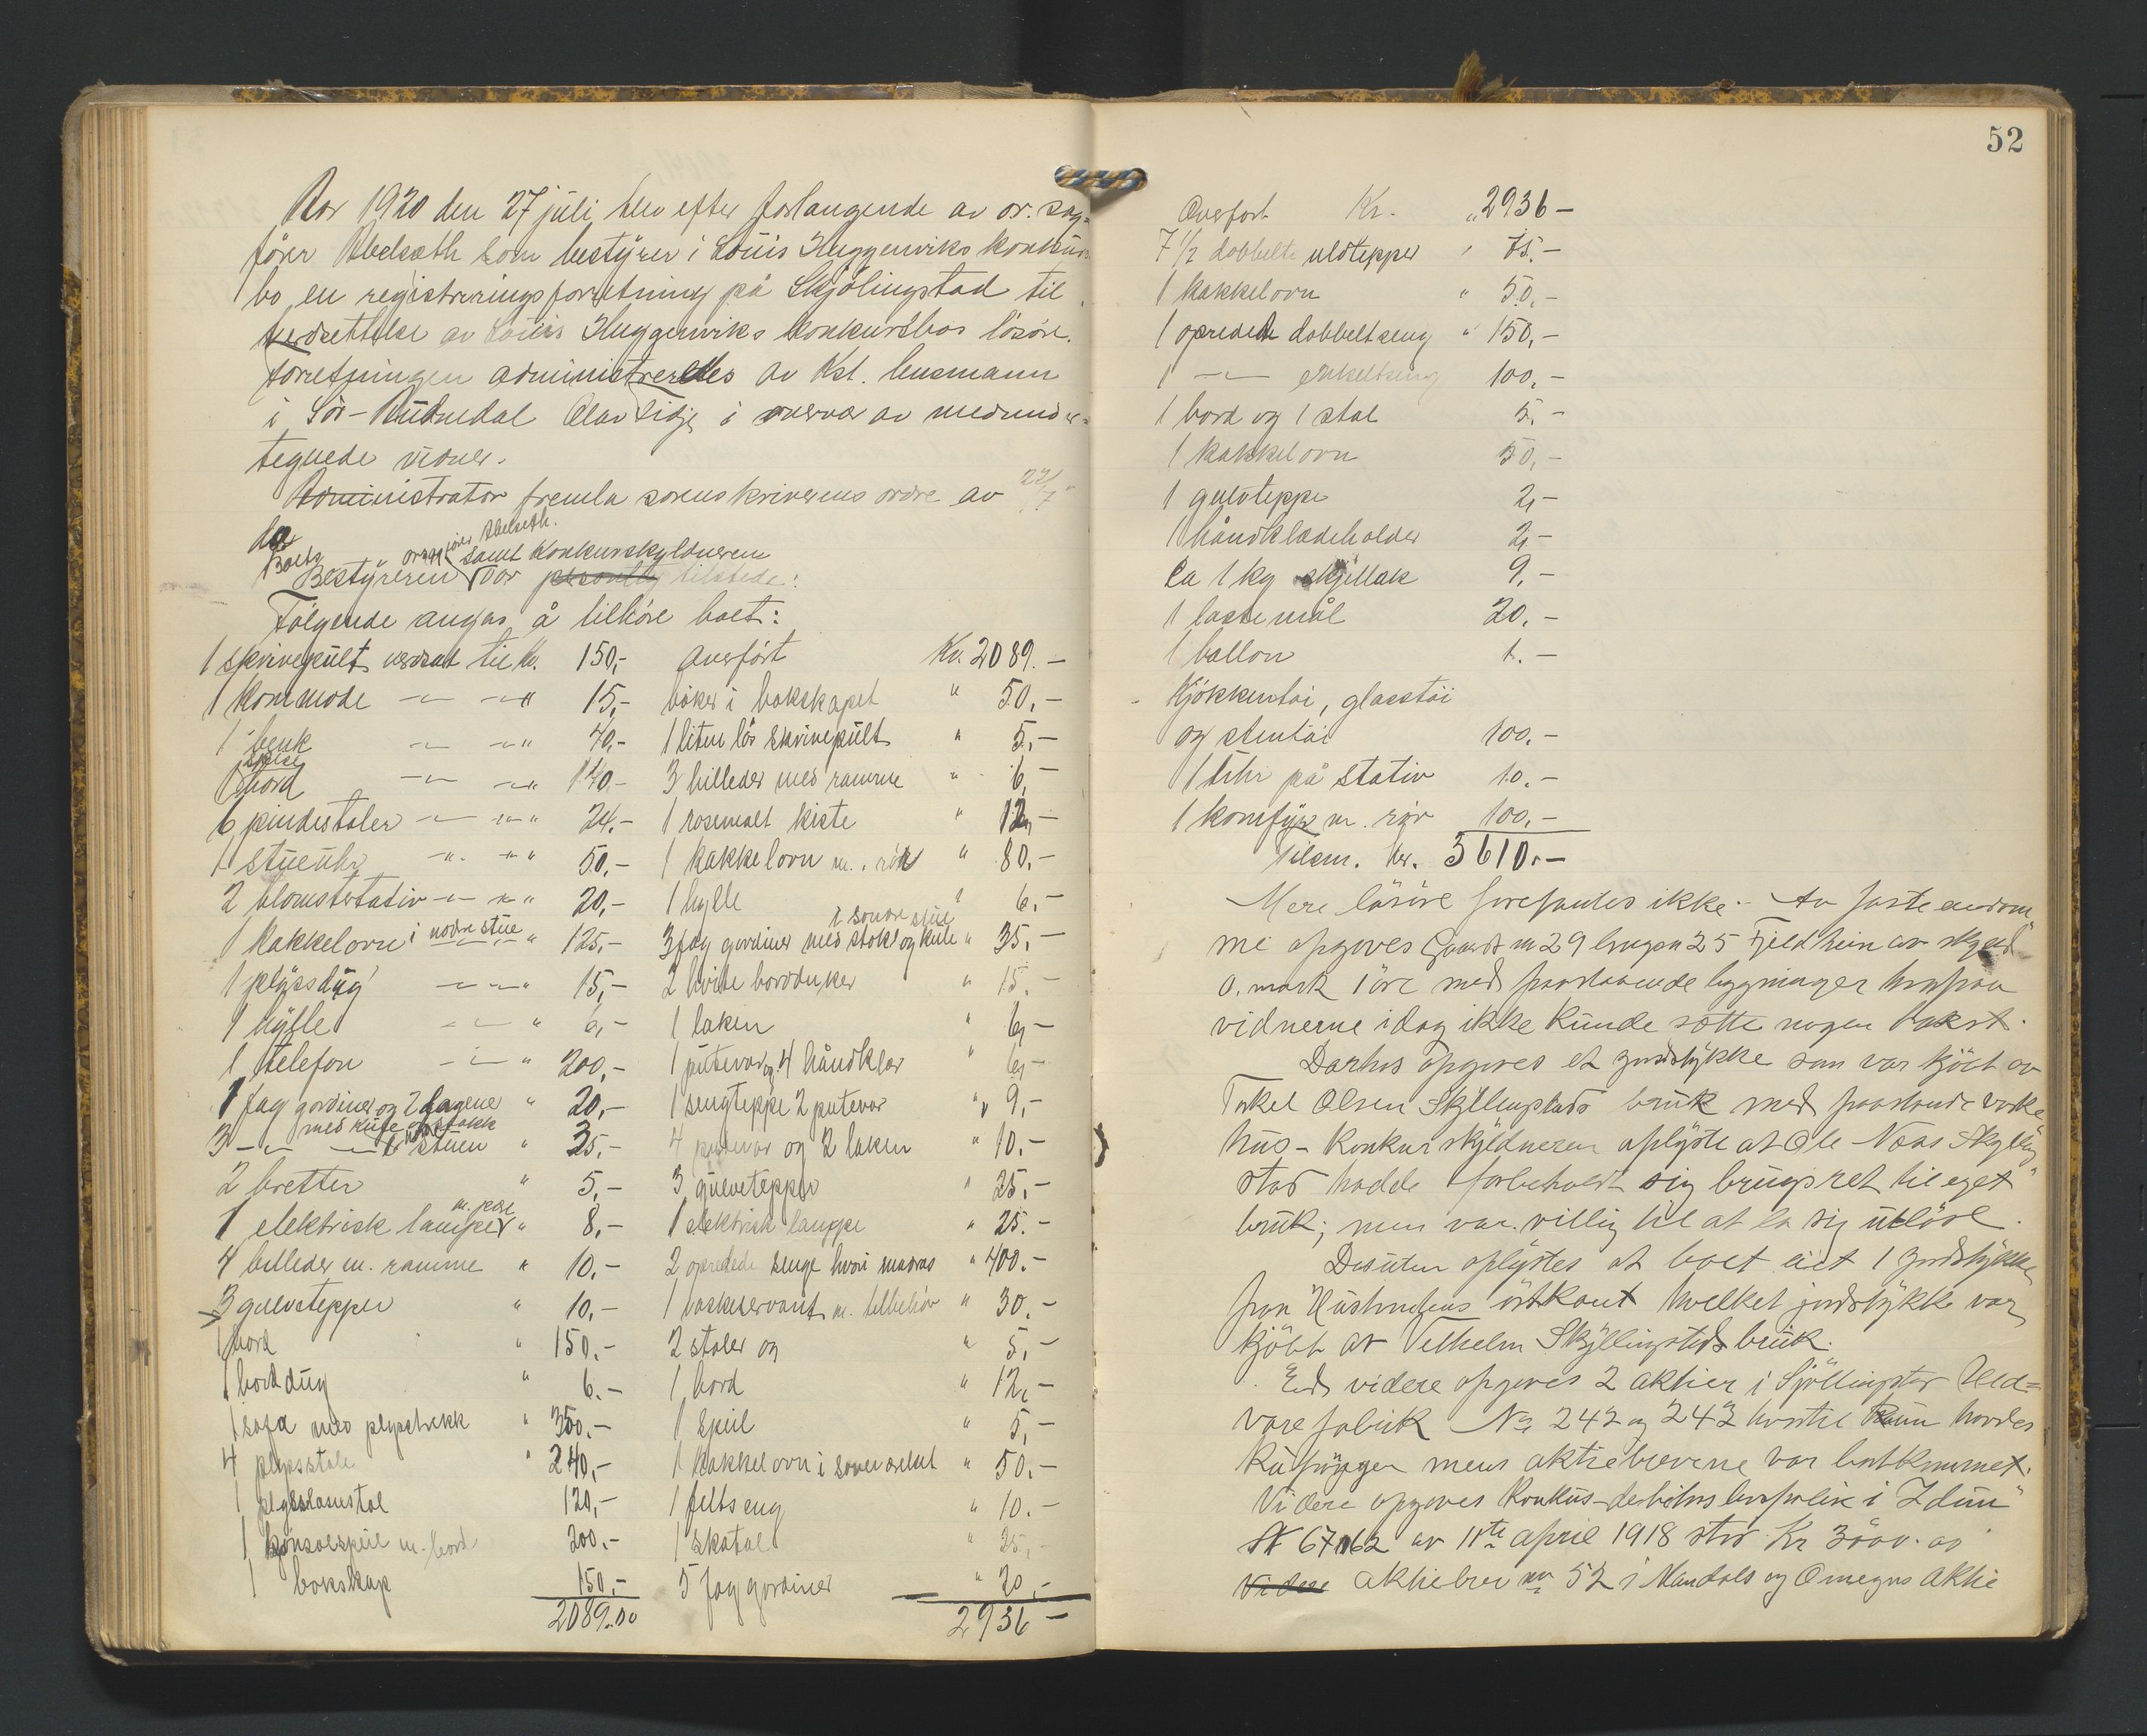 Aar 1920 den 27 juli blev efter forlangende av or. sag-
förer Abelseth som bestyrer i Louis Huggenviks konkurs
bo en registreringsforretning på Skjölingstad til
verdsettelse av Louis Huggenviks konkursbos lösöre.
Forretningen administreredes av Kst. lensmann
i Sör-Audnedal Olav Lidje i overvær av medunder-
tegnede vidner.
Administrator fremla sorenskriverens ordre av 22/7
ds.
Boets orsagförer Abelseth.
samt Konkursskyldneren
Bestyreren var personlig tilstede.
Fölgende angas å tilhöre boet:
1 skrivepult verdsat til kr. 150,-
1 kommode 15,-
1 benk 40,-
1 spisebord 140,-
6 pindestoler 24,-
1 stueuhr 50,-
2 blomsterstativ 20,-
1 kakkelovn i nodre stue 125,-
1 plyssdug 15,-
1 hylle 6,-
1 telefon 200,-
1 fag gardiner og 2 " 20,-
med kule og stokk
3 stuen " 35,-
2 bretter " 5,-
1 elektrisk lampe m. " 8,-
4 billeder m. ramme " 10,-
3 gulvtepper " 10,-
1 bord " 150.-
1 borddug " 6.-
1 sofa med plystrekk " 350.-
4 plysstole " 240,-
1 120,-
1 konsolspeil m. bord 200.-
1 bokskap 150,-
2089.00
Overfört Kr. 2089.-
böker i bokskapet " 50,-
1 liten lös skrivepult " 5,-
3 billeder med ramme " 6,-
1 rosemalt kiste " 12,-
1 kakkelovn m. rör " 80,-
1 hylle " 6,-
i sondre stue
3 fag gardiner med stokk og kule " 35.-
2 hvite bordduker " 15.
1 laken " 6,-
1 putevar og 4 håndklær " 6,-
1 sengteppe 2 putevar " 9,-
4 putevar og 2 laken " 10.-
3 gulvtepper " 25,-
1 elektrisk lampe " 25.-
2 opredede senge hvori madras " 400.-
1 vaskeservant m. tilbehör " 30.-
2 stoler og " 5,-
1 bord " 12,-
1 speil " 5,-
1 kakkelovn i soveværelset " 50.-
1 feltseng " 10.-
1 " 25,-
5 fag gardiner " 20,-
2936-
52
Overfört Kr. " 2936-
7 1/2 dobbelte uldtepper " 75.-
1 kakkelovn " 50,-
1 opredede dobbeltseng " 150,-
1 enkeltseng 100,-
1 bord og 1 stol 5.-
1 kakkelovn 50,-
1 gulvteppe 2,-
1 håndklædeholder 2,-
Ca 1 kg skjellak 9,-
1 lastemål 20.-
1 ballon 1.-
Kjökkentöi, glasstöi
og stentöi 100.-
1 på stativ 10.-
1 komfyr m. rör 100.-
Tilsm. kr. 3610.-
Mere lösöre forefantes ikke. Av faste eiendom
me opgives Gaards nr 29 brugsnr 25 Fjeldheim av skyld
0. mark 1 öre med paastaaende bygninger hvorpaa
vidnerne idag ikke kunde sætte nogen takst.
Darhos opgives et jordstykke som var kjöpt av
Torkel Olsen Skjöllingstads bruk med paastaande
hus - Konkurskyldneren oplyste at Ole Noas Skylling
stad hadde forbeholdt sig brugsret til eget
bruk; men var villig til at la sig utlöse.
Desuten oplystes at boet eiet 1 jordstykke
fra östkant hvilket jordstykke var
kjöbt av Vilhelm Skyllingstads bruk.
End videre opgives 2 aktier i Sjöllingstad Uld-
varefabrik No 242 og 243 hvortil kun havdes
kuponger mens aktiebrevene var bortkommet.
Videre opgives i "Idun"
No 67162 av 11te april 1918 stor Kr 3000. og
Videre aktiebrev nr 52 i Mandals og Omegns Aktie